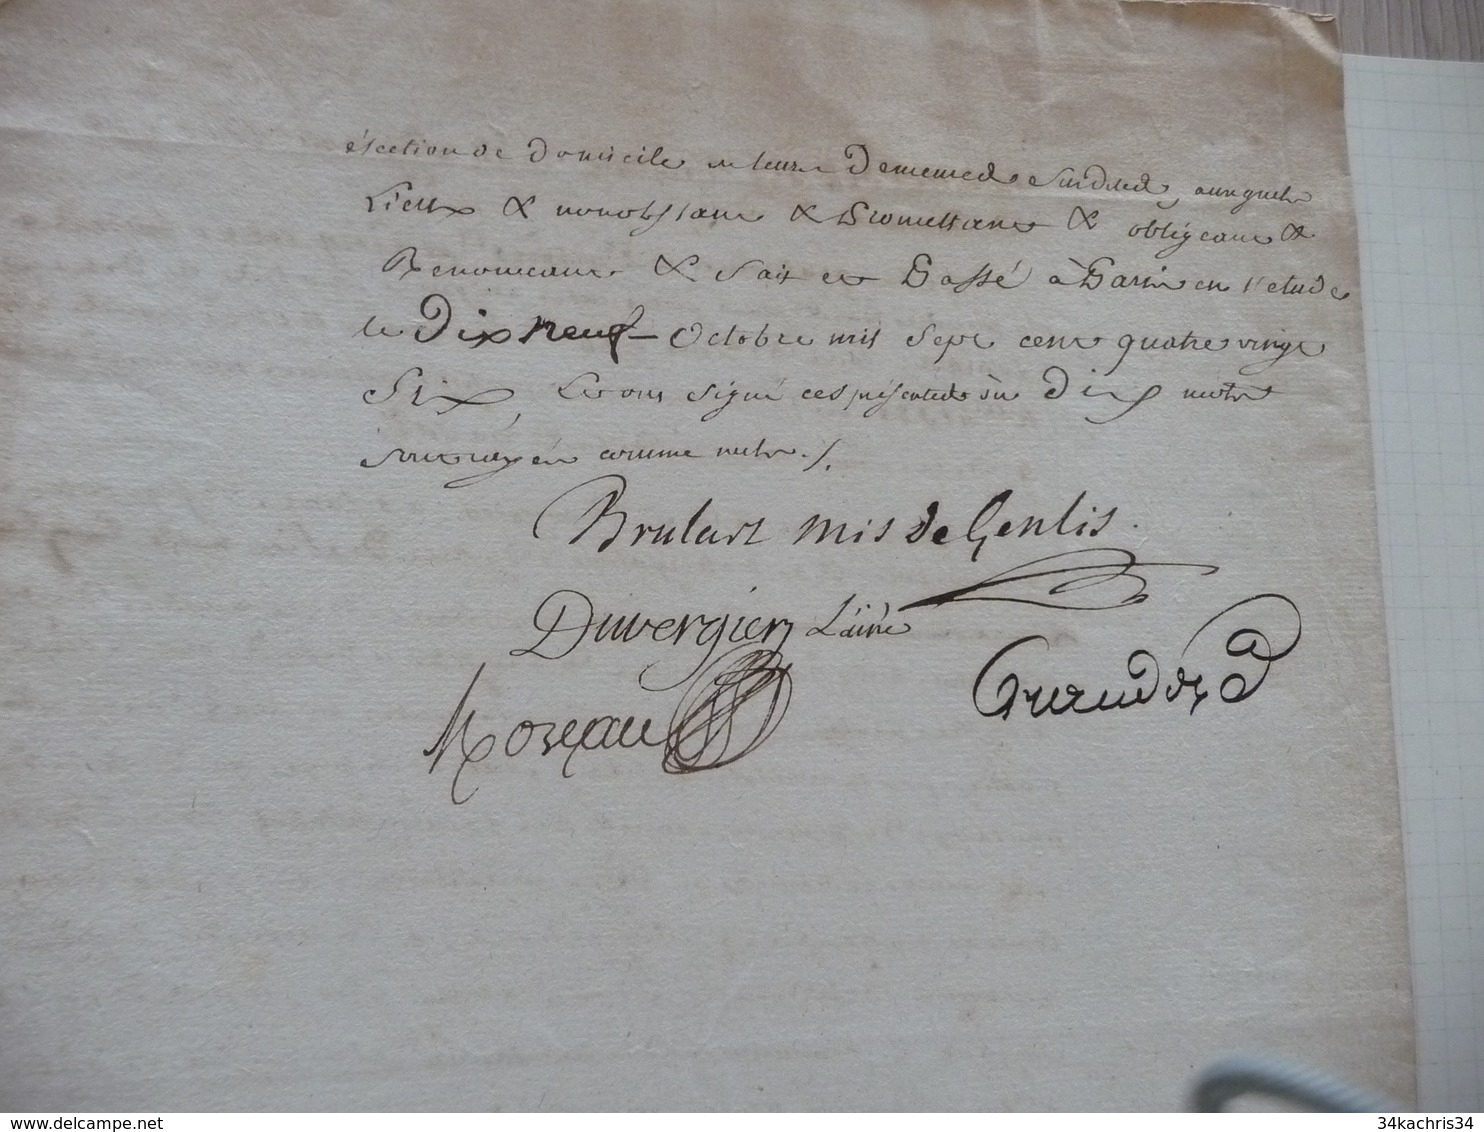 élection de domicile en leurs Demeures Susdites, auxquels
Lieux & nonobstant & Promettant & obligeant &
Renonceant & fait et Passé à Paris en l'etude
le Dix neuf Octobre mil sept cent quatre vingt
Six, Et ont signé ces présentes où Dix mots
sont rayés comme nuls ./.
Brulart mis de Genlis.
Duvergier L'ainé
Moreau
Giraudet
www.delcampe.net
34kachris34